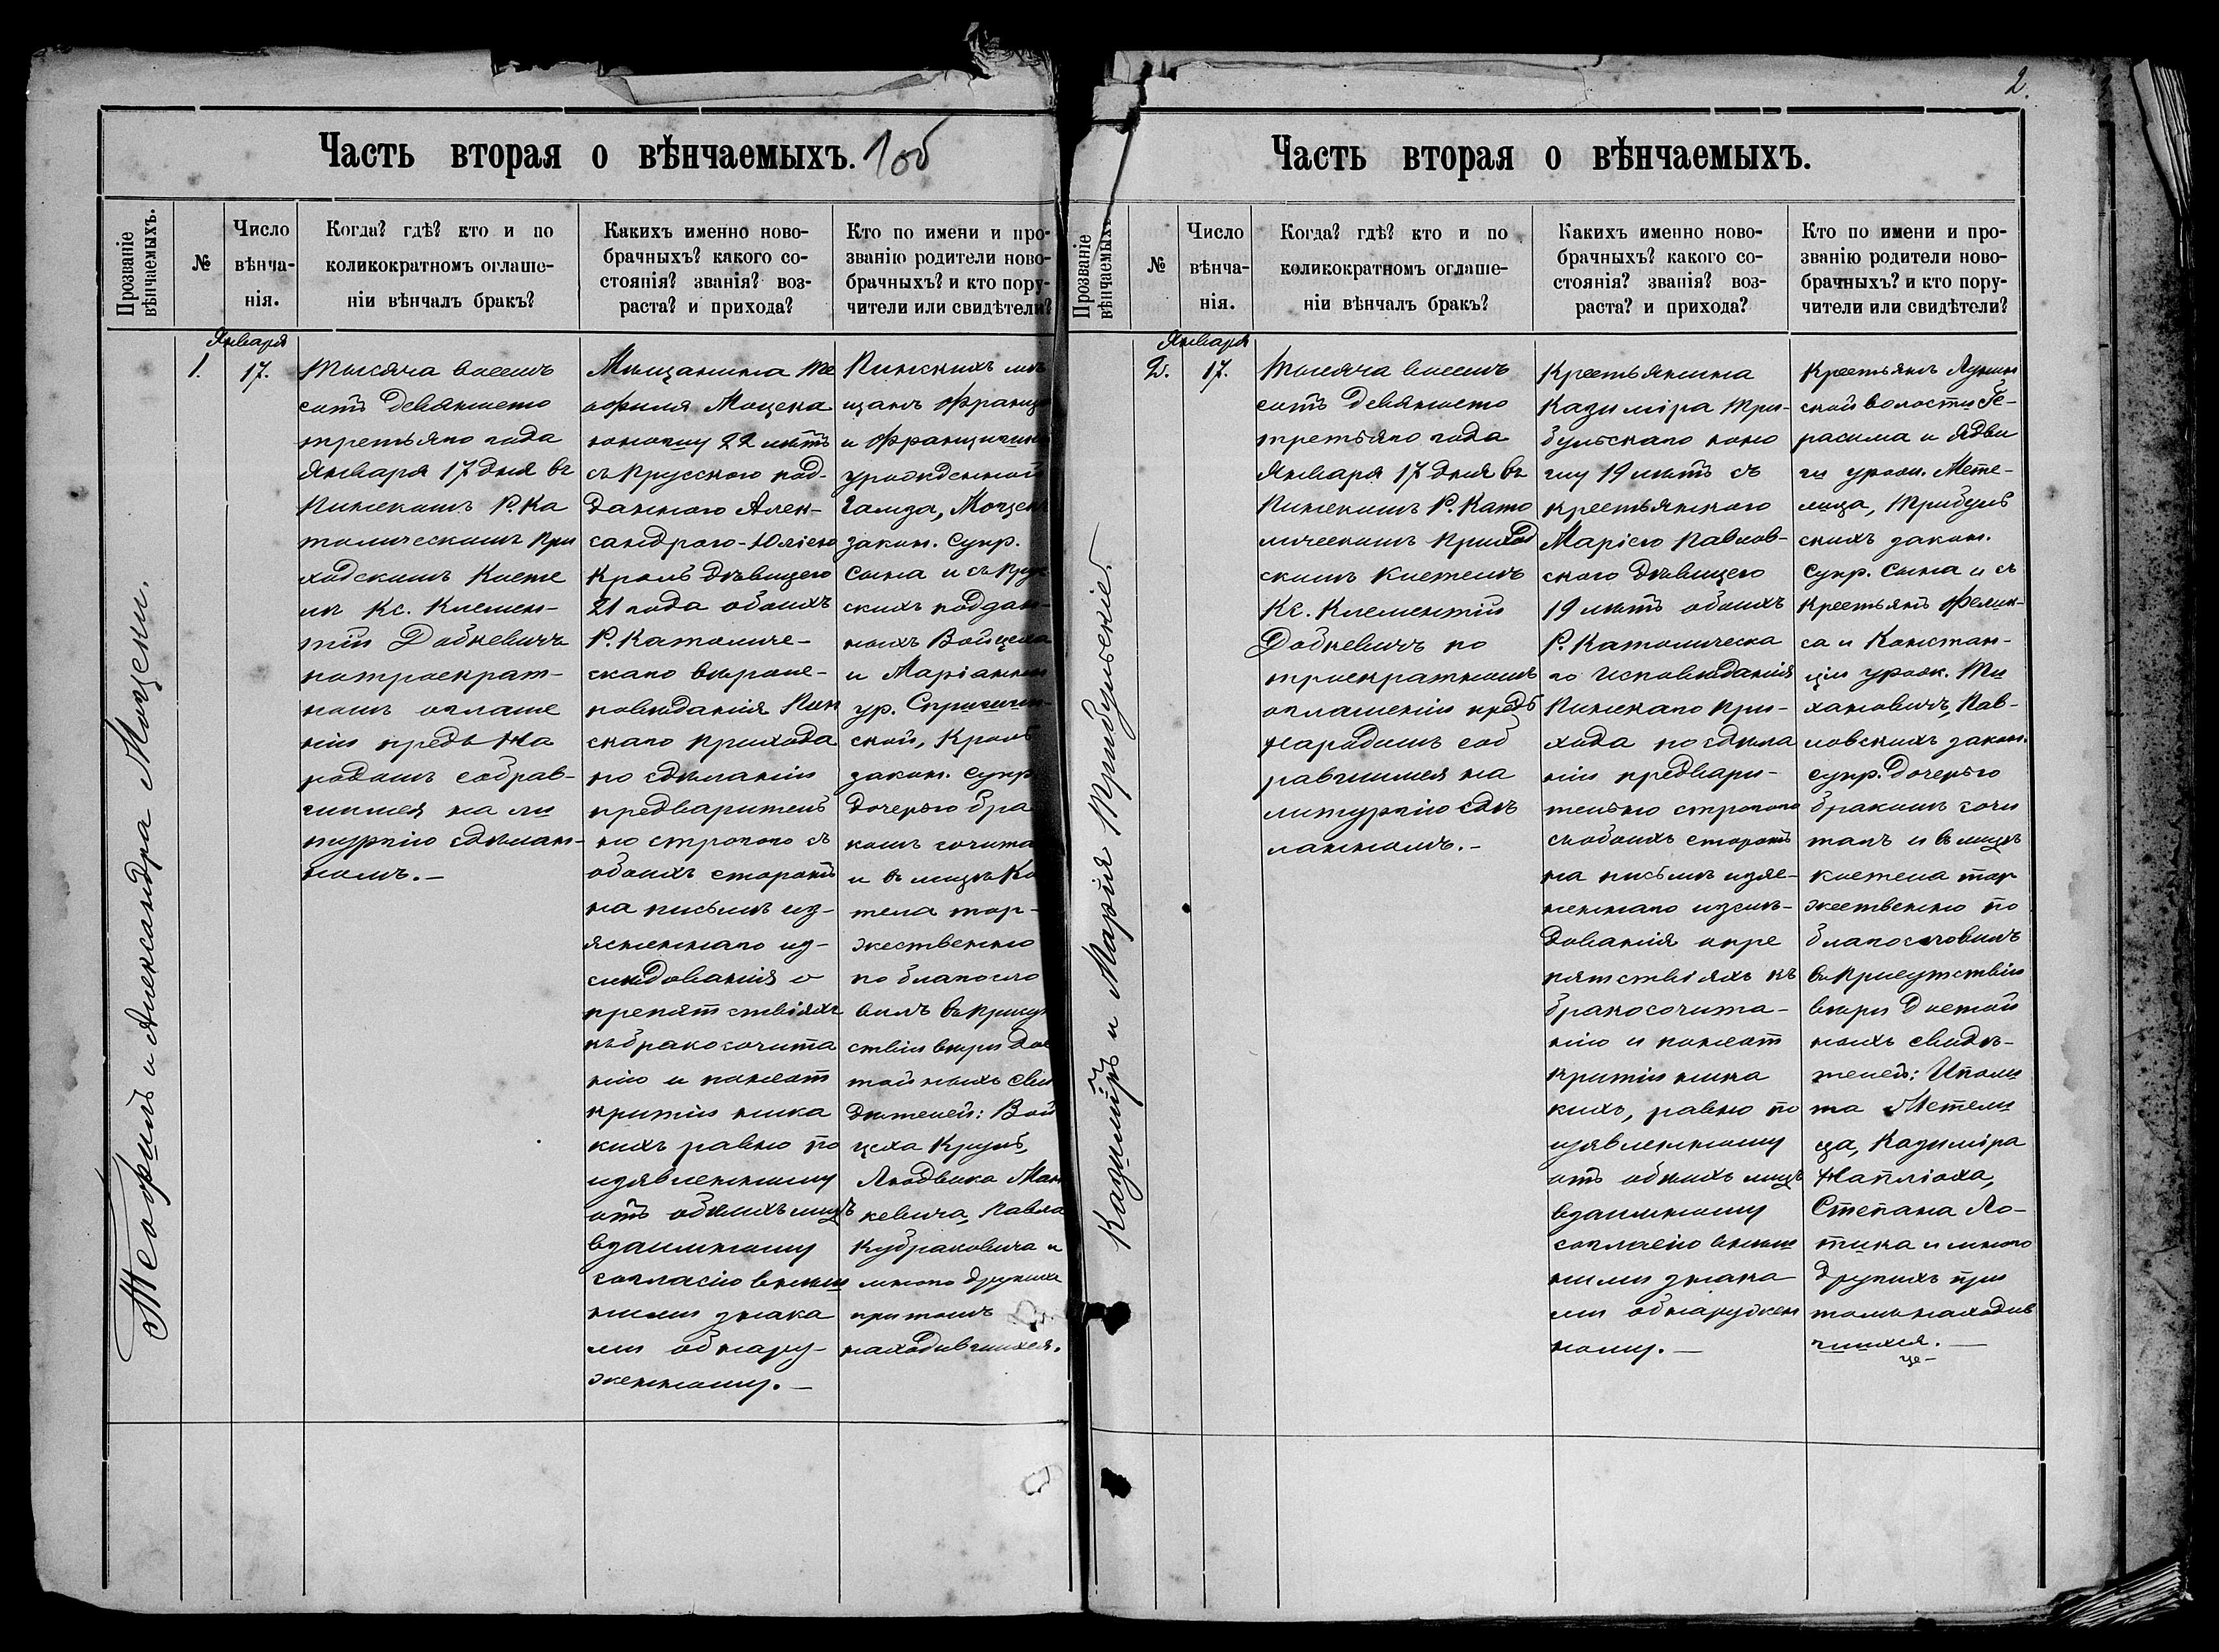 2.
Часть вторая о вѣнчаемыхъ. 1об
Прозваніе вѣнчаемыхъ.
№
Число вѣнча-
нія.
Когда? гдѣ? кто и по
коликократномъ оглаше-
ніи вѣнчалъ бракъ?
Какихъ именно ново-
брачныхъ? какого со-
стоянія? званія? воз-
раста? и прихода?
Кто по имени и про-
званію родители ново-
брачныхъ? и кто пору-
чители или свидѣтели?
Теофиль и Александра Моцеки.
Января
1.
17.
Тысяча восемъ
сотъ девяносто
третьяго года
Января 17 дня въ
Пинскомъ Р. Ка
толическомъ при
ходскомъ косте
лѣ Кс. Клемен-
тій Добкевичъ
потроекрат-
номъ оглаше
ніи предъ на
родомъ собрав-
шимся на ли
тургію сдѣлан-
номъ.—
Мѣщанина Те
офиля Моцека
юношу 22 лѣтъ
съ прусского под-
данного Алек-
сандрою-Юліею
Кроль дѣвицею
21 года обоихъ
Р. Католиче-
скаго вѣроис-
повѣданія Пин
скаго прихода
по сдѣланіи
предваритель
но строгого съ
обоихъ сторонъ
на письмѣ из-
ясненнаго из-
слѣдованія о
препятствіяхъ
къ бракосочита
нію и понеот
крытіи ника
кихъ равно по
изявленному
отъ обоихъ лицъ
взаимному
согласію внѣш
ними знака
ми обнару-
женному.—
Пинскихъ мѣ
щанъ Франца
и Францишки
урожденной
Гализа,
закон. супр.
сына и съ прус
скихъ поддан-
ныхъ Войцеха
и Маріанны
ур.
ской, Кроль
закон. супр.
дочерью бра
комъ сочита
и въ лицѣ Ко
тела тор-
жественно
по благосло
вилъ въ присут
ствіи вѣры дос
тойныхъ сви
дѣтелей: Вой
цеха Круль,
Людвика Мац
кевича, Павла
Кубраковича и
много другихъ
притомъ
находившихся.
Часть вторая о вѣнчаемыхъ.
Прозваніе вѣнчаемыхъ
№
Число вѣнча-
нія.
Когда? гдѣ? кто и по
коликократномъ оглаше-
ніи вѣнчалъ бракъ?
Какихъ именно ново-
брачныхъ? какого со-
стоянія? званія? воз-
раста? и прихода?
Кто по имени и про-
званію родители ново-
брачныхъ? и кто пору-
чители или свидѣтели?
Казимиръ и Марія Трибульскіе.
Января
2.
17.
Тысяча восемъ
сотъ девяносто
третьяго года
Января 17 дня въ
Пинскомъ Р. Като
лическомъ приход
скомъ костелѣ
Кс. Клементій
Добкевичъ по
троекратномъ
оглашеніи предъ
народомъ соб
равшимся на
литургію сдѣ
ланномъ.—
Крестьянина
Казиміра Три-
бульскаго юно
шу 19 лѣтъ съ
крестьянкою
Маріею Павлов-
скою дѣвицею
19 лѣтъ обоихъ
Р. Католическа
го исповѣданія
Пинскаго при-
хода по сдѣла
ніи предвари-
тельно строгого
съ обоихъ сторонъ
на письмѣ изяс-
неннаго изслѣ-
дованія о пре
пятствіяхъ къ
бракосочита-
нію и понеот
крытіи ника
кихъ, равно по
изявленному
отъ обоихъ лицъ
взаимному
согласію внѣш
ними знака
ми обнаружен
ному.—
Крестьянъ Лунин
ской волости Ге-
расима и Ядви
ги урож. Мете-
лица, Трибуль
скихъ закон.
супр. сына и съ
крестьянъ Фелик-
са и Констан-
ціи урож. Ти
хановичъ, Пав-
ловскихъ закон.
супр. дочерью
бракомъ сочи
талъ и въ лицѣ
костела тор
жественно по
благословилъ
въ присутствіи
вѣры достой
ныхъ свидѣ-
телей: Иполи
та Метели
ца, Казиміра
Напліоха,
Степана Ло-
тика и много
другихъ при
томъ находив
шихся.—